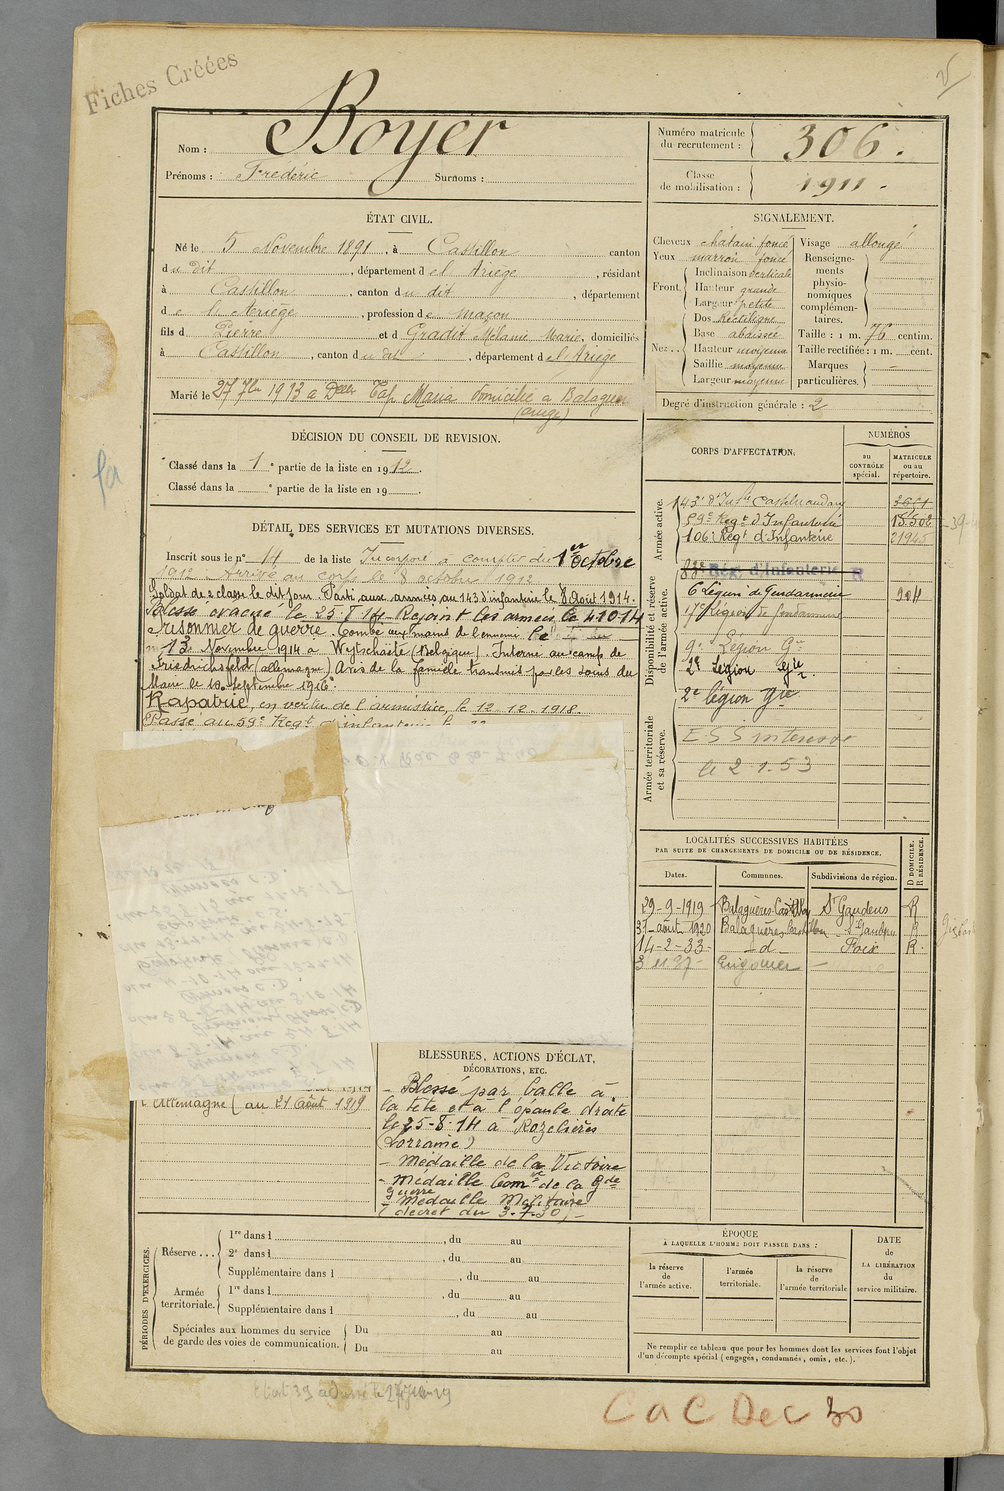 Fiches Créées
Nom : Boyer
Prénoms : Frédéric Surnoms :
Numéro matricule du recrutement : 306.
Classe de mobilisation : 1911.
ÉTAT CIVIL.
Né le 5 Novembre 1891, à Castillon canton
du dit, département de l'Ariège, résidant
à Castillon, canton du dit, département
de l'Ariège, profession de maçon
fils de Pierre et de Gradit Mélanie Marie, domiciliés
à Castillon, canton du dit, département de l'Ariège
Marié le 27 7bre 1913 a Delle Tap Maria domicilie a Balaguères
(ariège)
SIGNALEMENT.
Cheveux châtain foncé
Yeux marron foncé
Front. Inclinaison verticale
Hauteur grande
Largeur petite
Nez.. Dos Rectiligne
Base abaissée
Hauteur moyenne
Saillie moyenne
Largeur moyenne
Visage allongé
Renseignements physionomiques complémentaires.
Taille : 1 m. 76 centim.
Taille rectifiée : 1 m. cent.
Marques particulières.
Degré d'instruction générale : 2
DÉCISION DU CONSEIL DE REVISION.
Classé dans la 1e partie de la liste en 1912.
Classé dans la e partie de la liste en 19 .
DÉTAIL DES SERVICES ET MUTATIONS DIVERSES.
Inscrit sous le n° 14 de la liste Incorporé à compter du 1er octobre
1912. Arrivé au corps le 8 octobre 1912
Soldat de 2e classe le dit jour. Parti aux armées au 143 d'infanterie le 8 Août 1914.
Blessé évacué le 25-8-14 Rejoint les armées le 4-10-14
Prisonnier de guerre. Tombé aux mains de l'ennemi le
13 Novembre 1914 a Wytschaete (Belgique). Interné au camp de
Friedrichsfeld (allemagne) Avis de la famille transmit par les soins du
Maire le 10 septembre 1916.
Rapatrié, en vertu de l'armistice, le 12.12.1918.
Passé au 59e Regt d'infanterie le
CORPS D'AFFECTATION.
NUMÉROS
au CONTRÔLE spécial.
MATRICULE ou au répertoire.
Armée active.
143e d'Infrie Castelnaudary
59e Regt d'Infanterie 15.502
106e Regt d'Infanterie 21945
Disponibilité et réserve de l'armée active.
83e Rég. d'Infanterie R
6 Légion de Gendarmerie 904
17e Légion de Gendarmerie
9e Légion Gie
2e Légion Gie.
2e légion Gie
Armée territoriale et sa réserve.
le 2.1.53
LOCALITÉS SUCCESSIVES HABITÉES
PAR SUITE DE CHANGEMENTS DE DOMICILE OU DE RÉSIDENCE.
Dates. Communes. Subdivisions de région. D DOMICILE. R RÉSIDENCE.
29-9-1919 Balaguères Castillon St Gaudens R
31-août 1920 Balaguères Castillon St Gaudens R
14-2-33 d Foix R.
3 11 37 Engomer
l'Allemagne (au 21 Août 1919
BLESSURES, ACTIONS D'ÉCLAT,
DÉCORATIONS, ETC.
- Blessé par balle à
la tête et à l'épaule droite
le 25-8-14 à Rozelières
(Lorraine)
- Médaille de la Victoire
- Médaille Comve de la Gde
Guerre
- Médaille Militaire
(décret du 3.7.30)
PÉRIODES D'EXERCICES.
Réserve...
1re dans l , du au
2e dans l , du au
Supplémentaire dans l , du au
Armée territoriale.
1re dans l , du au
Supplémentaire dans l , du au
Spéciales aux hommes du service de garde des voies de communication.
Du au
Du au
ÉPOQUE
À LAQUELLE L'HOMME DOIT PASSER DANS :
la réserve de l'armée active.
l'armée territoriale.
la réserve de l'armée territoriale
DATE de LA LIBÉRATION du service militaire.
Ne remplir ce tableau que pour les hommes dont les services font l'objet
d'un décompte spécial (engagés, condamnés, omis, etc.).
CaC Dec 30